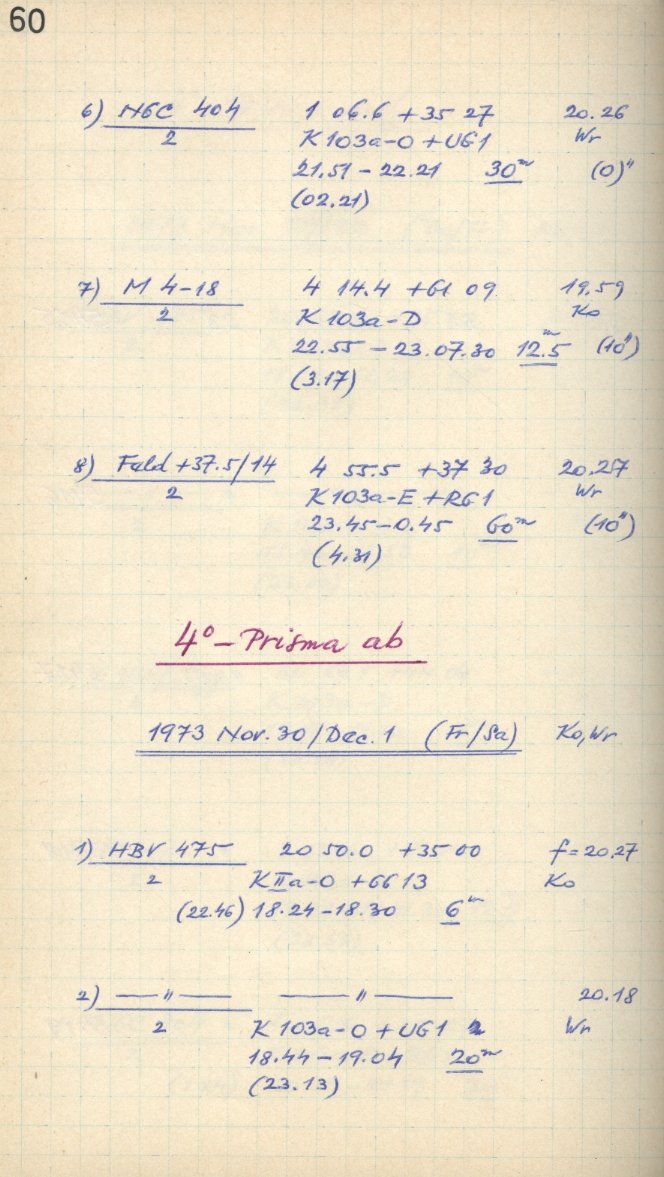 60
6) NGC 404 1 06.6 +35 27 20.26
2 K 103a-O + UG1 Wr
21.51 - 22.21 30m (0)"
(02.21)
7) M 4-18 4 14.4 +61 09 19.59
2 K 103a-D Ko
22.55 - 23.07.30 12.5m (10")
(3.17)
8) Feld +37.5/14 4 55.5 +37 30 20.27
2 K 103a-E + RG1 Wr
23.45-0.45 60m (10")
(4.31)
4° - Prisma ab
1973 Nov. 30/Dec. 1 (Fr/Sa) Ko, Wr
1) HBV 475 20 50.0 +35 00 f=20.27
2 KIIa-O + GG13 Ko
(22.46) 18.24-18.30 6m
2) — " — — " — 20.18
2 K 103a-O + UG1 2 Wr
18.44 - 19.04 20m
(23.13)